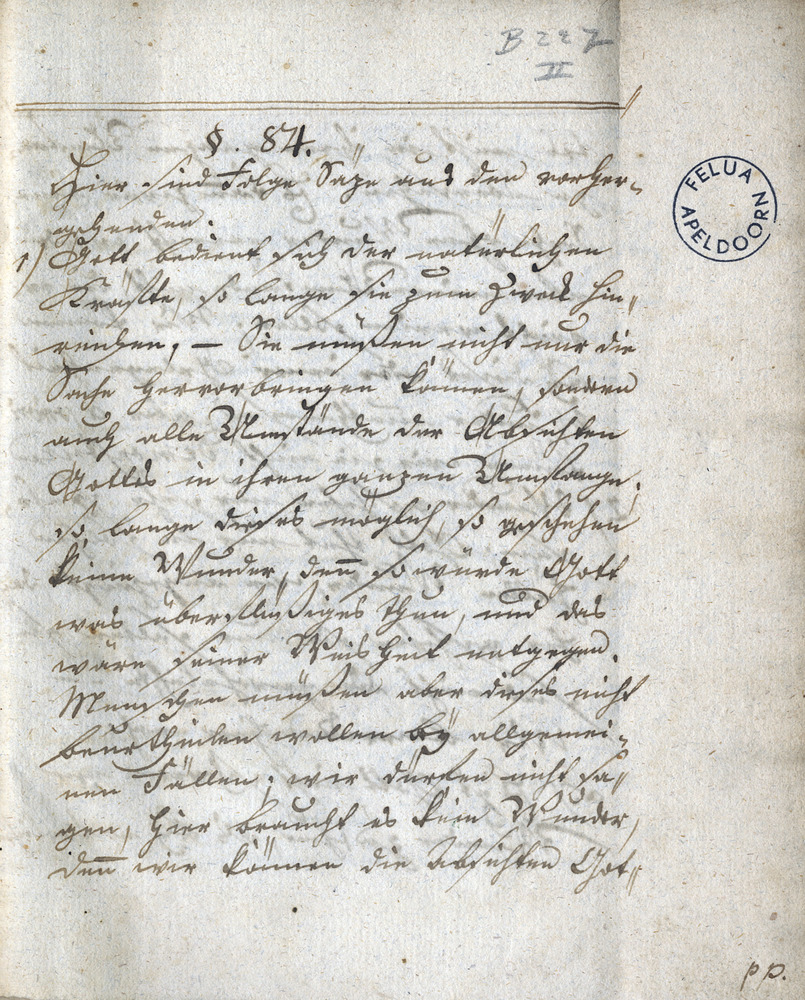 B 227
II
§. 84.
Hier sind Folge Säze aus den vorher-
gehenden.
1) Gott bedient sich der natürlichen
Kräfte, so lange sie zum Zweck hin-
reichen, — Sie müßen nicht nur die
Sache hervorbringen können, sondern
auch alle Umstände der Absichten
Gottes in ihren ganzen Umfange.
so lange dieses möglich, so geschehen
keine Wunder, deñ so würde Gott
was überflüßiges thun, und das
wäre seiner Weisheit entgegen.
Menschen müßen aber dieses nicht
beurtheilen wollen bÿ allgemei-
nen Fällen; wir dürfen nicht sa-
gen, hier braucht es kein Wunder,
deñ wir können die Absichten Got-
pp.
FELUA
APELDOORN